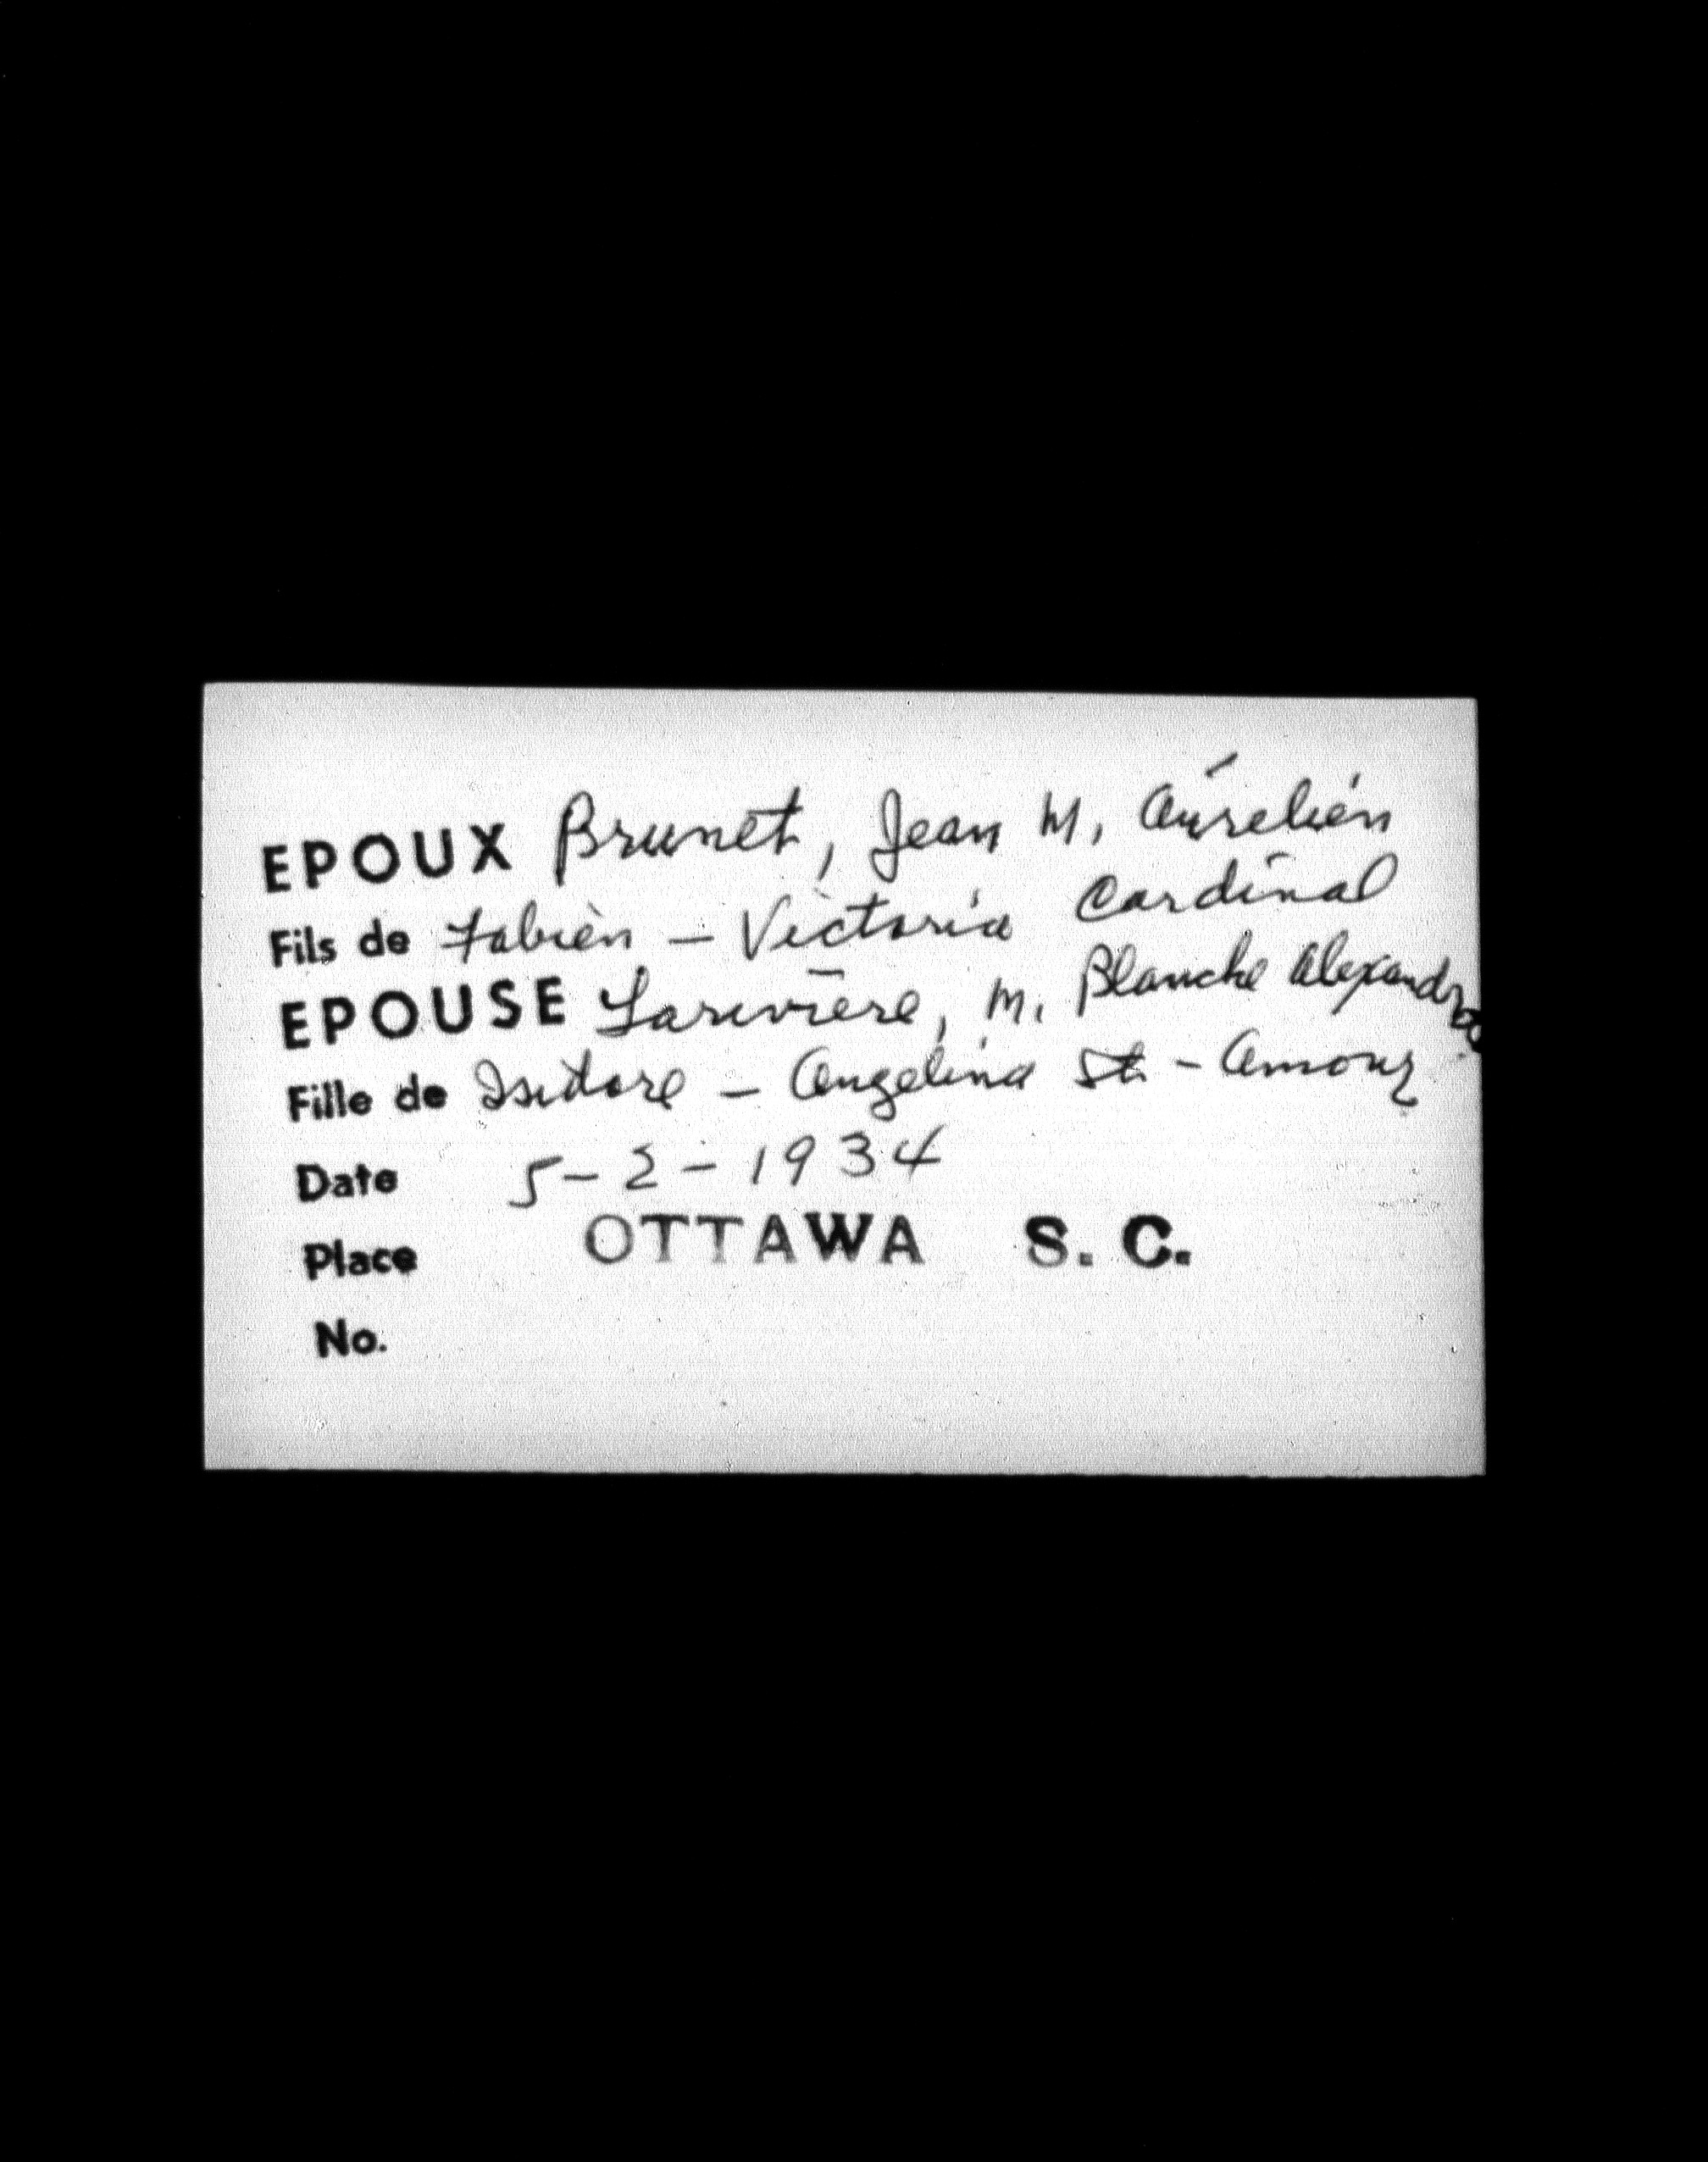 EPOUX Brunet, Jean M. Aurelien
Fils de Fabien - Victoria Cardinal
EPOUSE Lariviere, M. Blanche Alexandra
Fille de Isidore - Angelina St - Amour
Date 5-2-1934
Place OTTAWA S. C.
No.